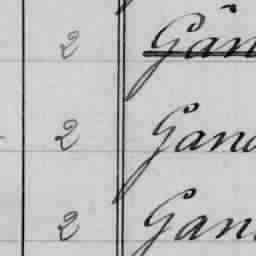 2 Gän
2 Gano
2 Gan